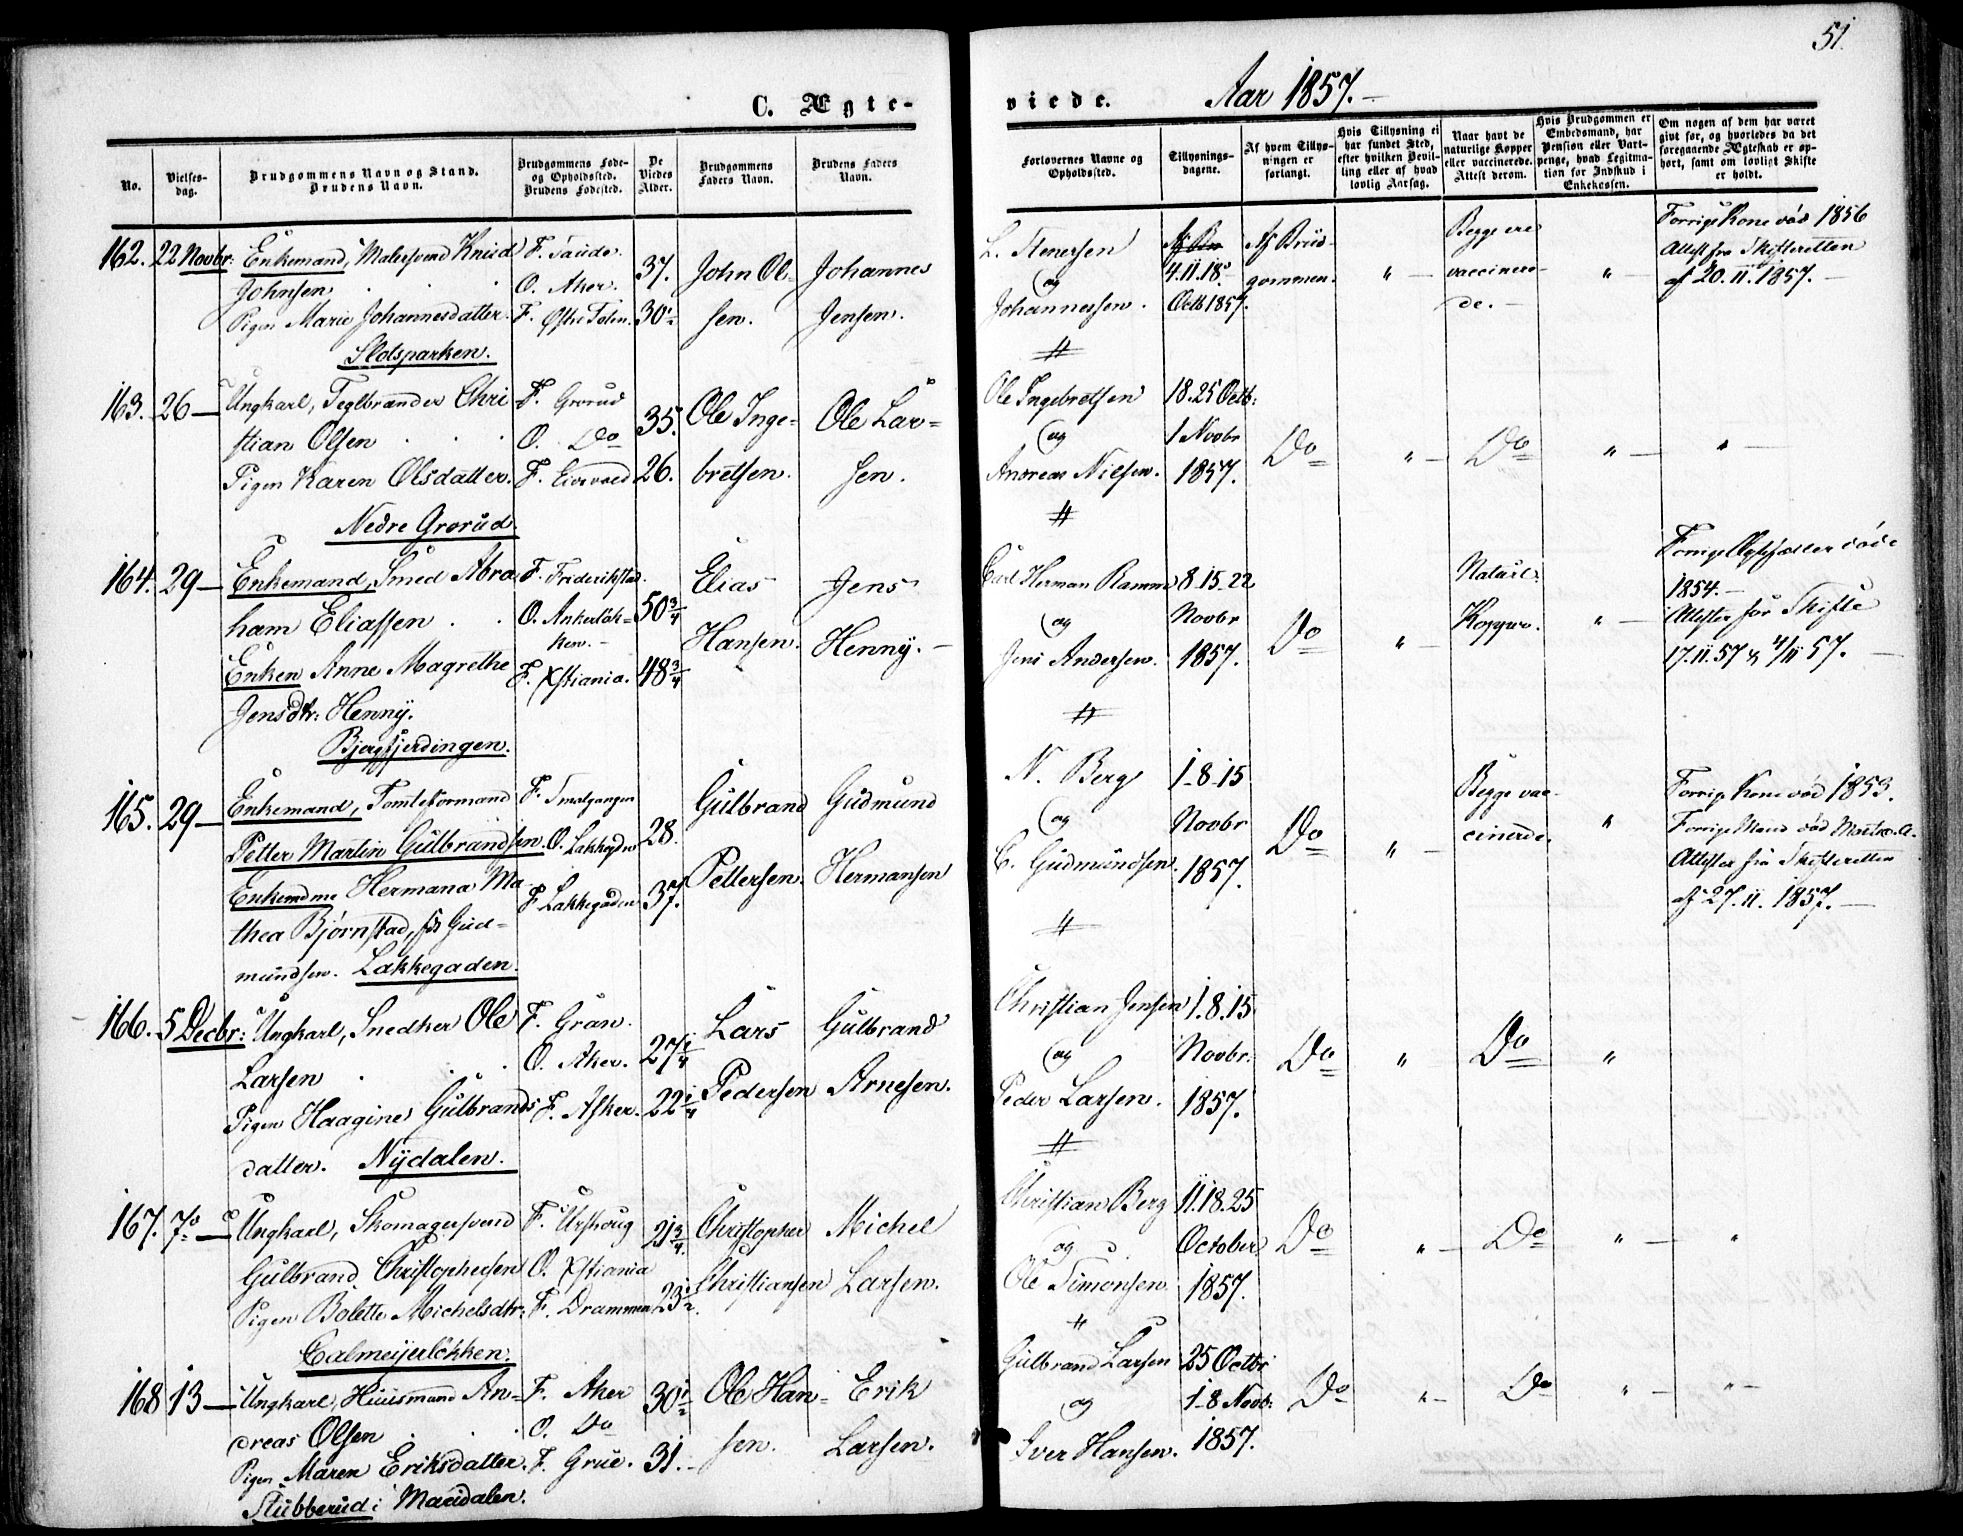 51.
C. Ægte-
viede. Aar 1857.
No.
Vielses-
dag.
Brudgommens Navn og Stand.
Brudens Navn.
Brudgommens Føde-
og Opholdssted.
Brudens Fødested.
De
Viedes
Alder.
Brudgommens
Faders Navn.
Brudens Faders
Navn.
Forlovernes Navne og
Opholdssted.
Tillysnings-
dagene.
Af hvem Tillys-
ningen er
forlangt.
Hvis Tillysning ei
har fundet Sted,
efter hvilken Bevil-
ling eller af hvad
lovlig Aarsag.
Naar havt de
naturlige Kopper
eller vaccinerede.
Attest derom.
Hvis Brudgommen er
Embedsmand, har
Pension eller Vart-
penge, hvad Legitima-
tion for Indskud i
Enkekassen.
Om nogen af dem har været
givt før, og hvorledes da det
foregaaende Ægteskab er op-
hørt, samt om lovligt Skifte
er holdt.
162. 22 Novbr: Enkemand, Malersvend Knud
Johnsen
Pigen Marie Johannesdatter.
Slotsparken.
O. Aker.
F. Østre Toten.
37.
30½
John Ol-
sen.
Johannes
Jensen.
L. Stenersen
og
Johannessen.
4.11.18.
Octb 1857.
Af Brud-
gommen.
" Begge ere
vaccinere-
de.
" Forrige Kone død 1856
Attest fra Skifteretten
af 20.11.1857.
163. 26 — Ungkarl, Teglbrænder Chri
stian Olsen
Pigen Karen Olsdatter.
Nedre Grorud.
F. Grorud
O. Do
F. Eidsvold
35.
26.
Ole Inge-
bretsen.
Ole Lar-
sen.
Ole Ingebretsen
og
Andreas Nilsen.
18.25 Octb:
1 Novbr
1857.
Do " Do " "
164. 29 — Enkemand, Smed Abra
ham Eliassen
Enken Anne Magrethe
Jensdtr: Henny.
Bjergfjerdingen.
F. Frederikstad.
O. Ankerløk-
ken.
F. Xstiania.
50¾
48¾
Elias
Hansen.
Jens
Henny.
Carl Herman Ramm
og
Jens Andersen.
8.15.22
Novbr
1857.
Do " Naturl.
Kopper. "
Forrige Ægtefæller døde
1854.
Attester for Skifte
17.11.57 & 4/11 57.
165. 29 — Enkemand, Tomteformand
Petter Martin Gulbrandsen.
Enkemdme Hermana Ma
thea Bjørnstad, fød Gud-
mundsen. Lakkegaden.
F. Smalgangen
O. Lakkegdn
F. Lakkegaden
28.
37.
Gulbrand
Pettersen.
Gudmund
Hermansen
N. Berg
og
C. Gudmundsen.
1.8.15
Novbr
1857.
Do " Begge vac-
cinerde. "
Forrige Kone død 1853.
Attester fra Skifteretten
af 27.11.1857.
166. 5 Decbr: Ungkarl, Snedker Ole
Larsen
Pigen Haagine Gulbrands
datter. Nydalen.
F. Gran.
O. Aker.
F. Asker.
27¼
22¼
Lars
Pedersen
Gulbrand
Arnesen.
Christian Jensen
og
Peder Larsen.
1.8.15
Novbr.
1857.
Do " Do "
167. 7 — Ungkarl, Skomagersvend
Gulbrand Christophersen
Pigen Bolette Michelsdtr:
Calmeijerløkken.
F. Urskoug
O. Xstiania
F. Drammen
21¾
23½
Christopher
Christiansen
Michel
Larsen.
Christian Berg
og
Ole Simonsen
11.18.25
October
1857.
Do " Do " "
168 13 — Ungkarl, Huusmand An-
dreas Olsen
Pigen Maren Eriksdatter.
Stubberud i Maridalen.
F. Aker
O. Do
F. Grue.
30½
31.
Ole Han-
sen.
Erik
Larsen.
Gulbrand Larsen
og
Iver Hansen.
25 Octbr
1-8 Novb:
1857.
Do " Do " "